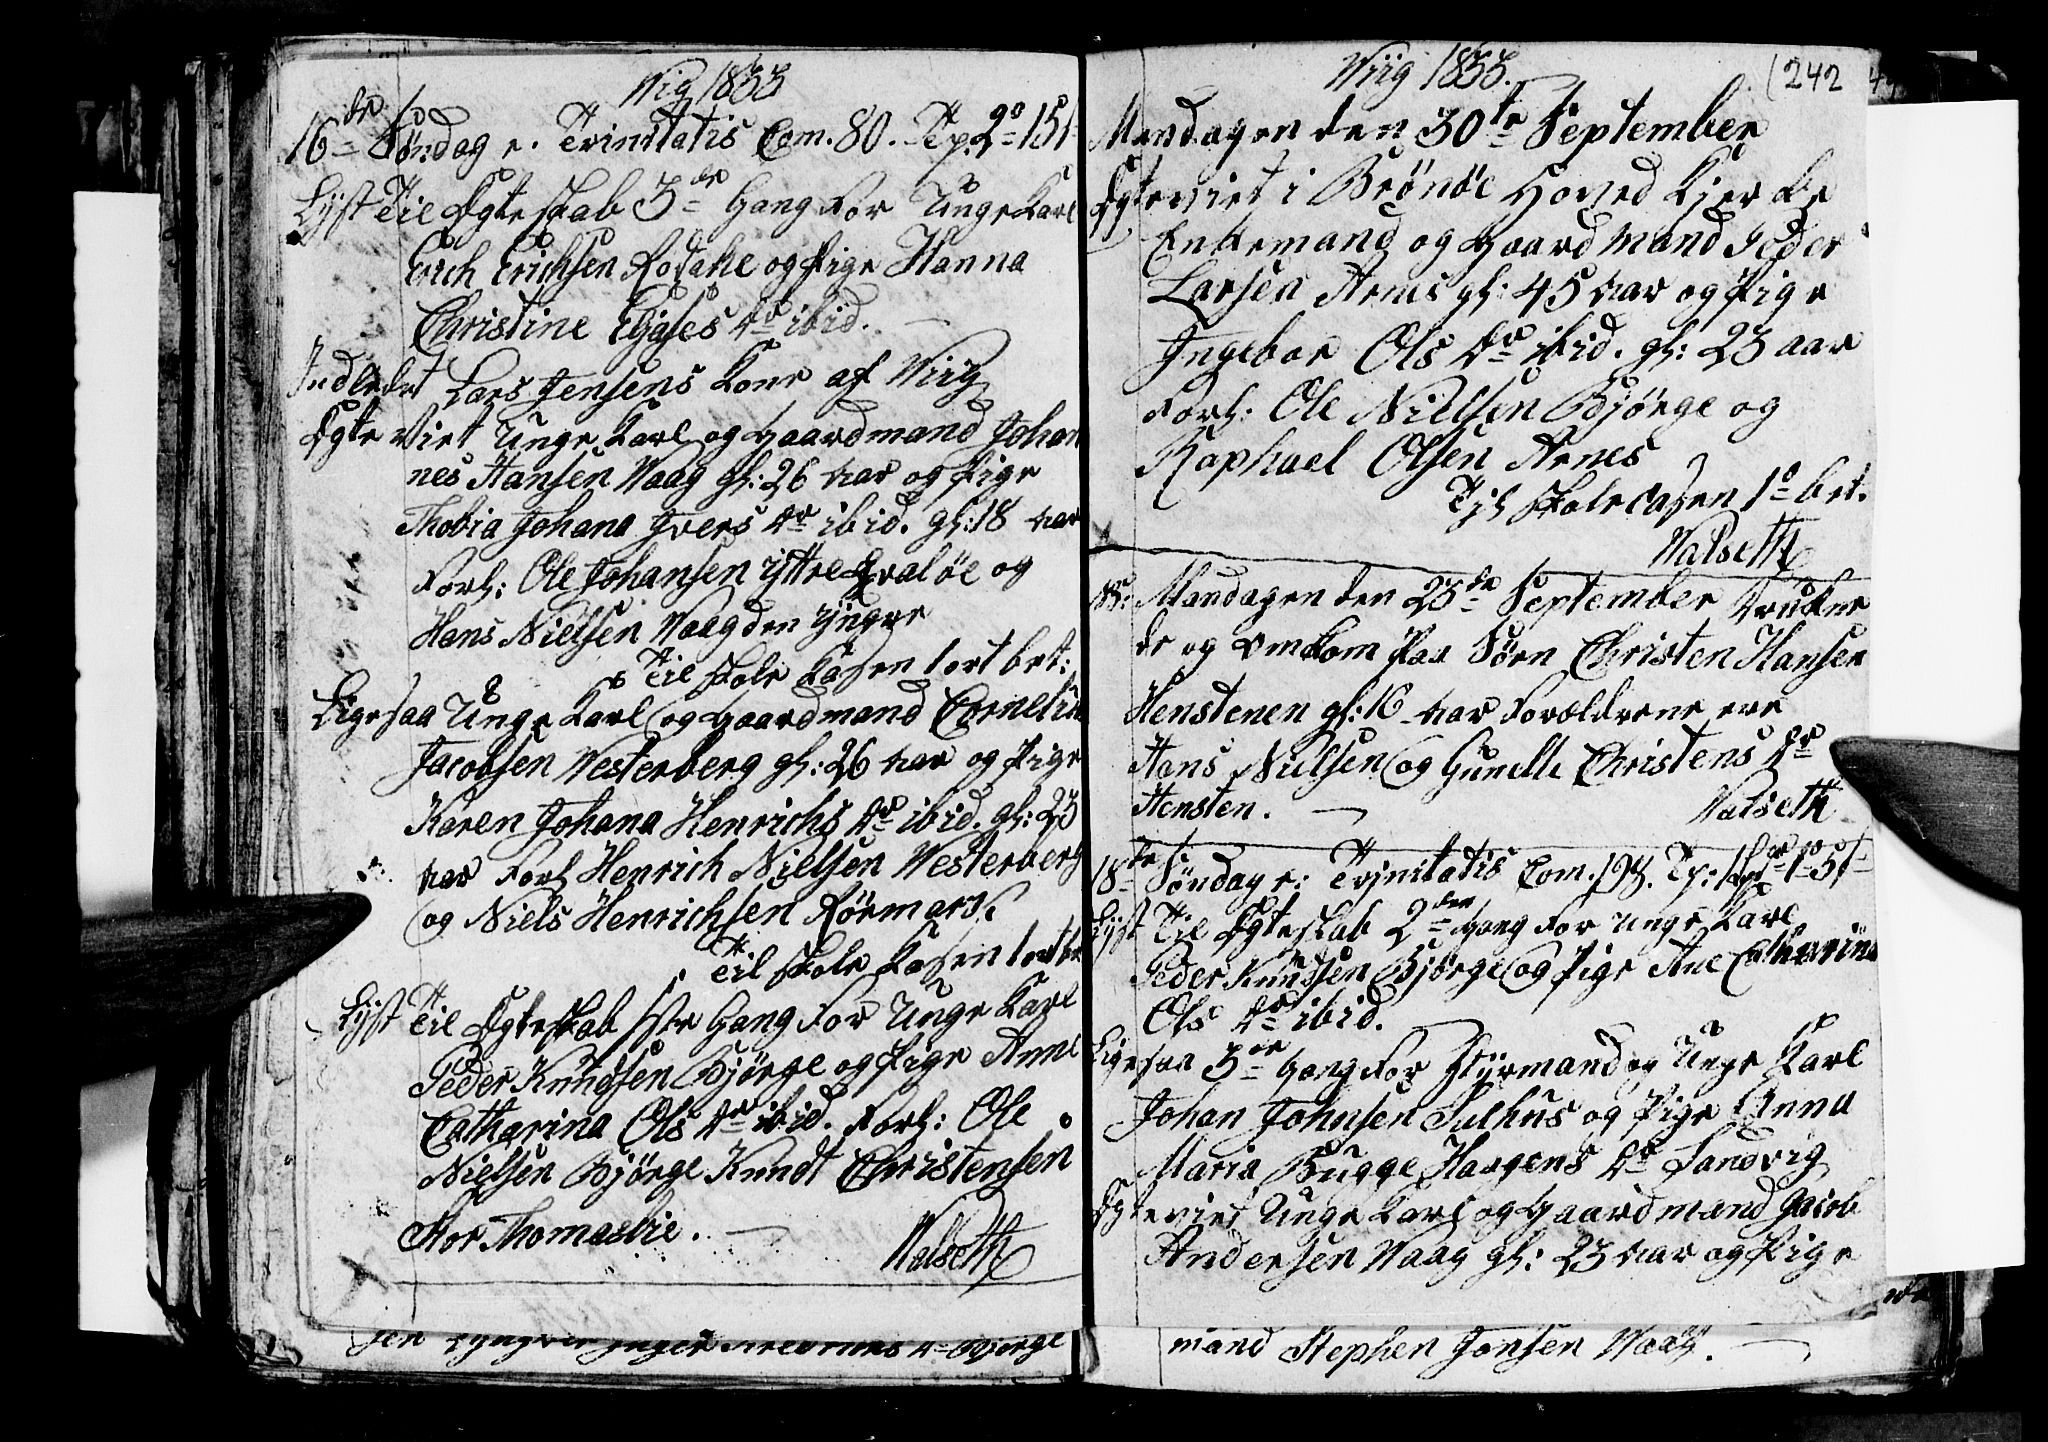 Wiig 1833
16de Søndag e. Trinitatis Com. 80. Tp. 2o 15s
Lyst Til Egteskab 3de Gang For Unge Karl
Erich Erichsen Rodahl og Pige Hanna
Christine dr ibid.
Indledet Lars Jensens Kone af Wiig
Egteviet Unge Karl og Gaardmand Johan
nes Hansen Waag gl: 26 Aar og Pige
Thobia Johana Ivers dr ibid. gl: 18 Aar
Forl: Ole Johansen Yttre Qvaløe og
Hans Nielsen Waag den Yngre
Til Skole Kasen 1 ort bet:
Ligesaa Unge Karl og Gaardmand Cornelius
Jacobsen Westerberg gl: 26 Aar og Pige
Karen Johana Henrichs dr ibid. gl: 23
Aar Forl Henrich Nielsen Westerberg
og Niels Henrichsen Rørmark
Til Skole Kasen 1 ort bet
Lyst Til Egteskab 1ste Gang For Unge Karl
Peder Knudsen Bjørge og Pige Anne
Catharina Ols dr ibid. Forl: Ole
Nielsen Bjørge Knudt Christensen
Stor Thomaslie.
Walseth
sen Inger dr Bjørge
Wiig 1833.
242
Mandagen den 30te September
Egteviet i Brønøe Hoved Kjerke
Enkemand og Gaardmand Peder
Larsen Arnes gl: 45 Aar og Pige
Ingebor Ols dr ibid. gl: 23 aar
Forl: Ole Nielsen Bjørge og
Raphael Olsen Arnes
Til Skole Casen 1o bet.
Walseth
NB: Mandagen den 23de September Drukne
de og omkom Paa Søen Christen Hansen
Henstenen gl: 16 Aar Forældrene ere
Hans Nielsen og Gunelle Christens dr
Hensten.
Walseth
18de Søndag e: Trinitatis Com. Tp:
Lyst Til Egteskab 2den Gang For Unge Karl
Peder Knudsen Bjørge og Pige Ane Catharina
Ols dr ibid.
Ligesaa 3de Gang For Styrmand og Unge Karl
Johan Johnsen Sulhus og Pige Anna
Maria Bugge Haagens dr Sandvig
Egteviet Unge Karl og Gaardmand Jacob
Andersen Waag gl: 23 Aar og Pige
mand Stephen Jonsen Waag.